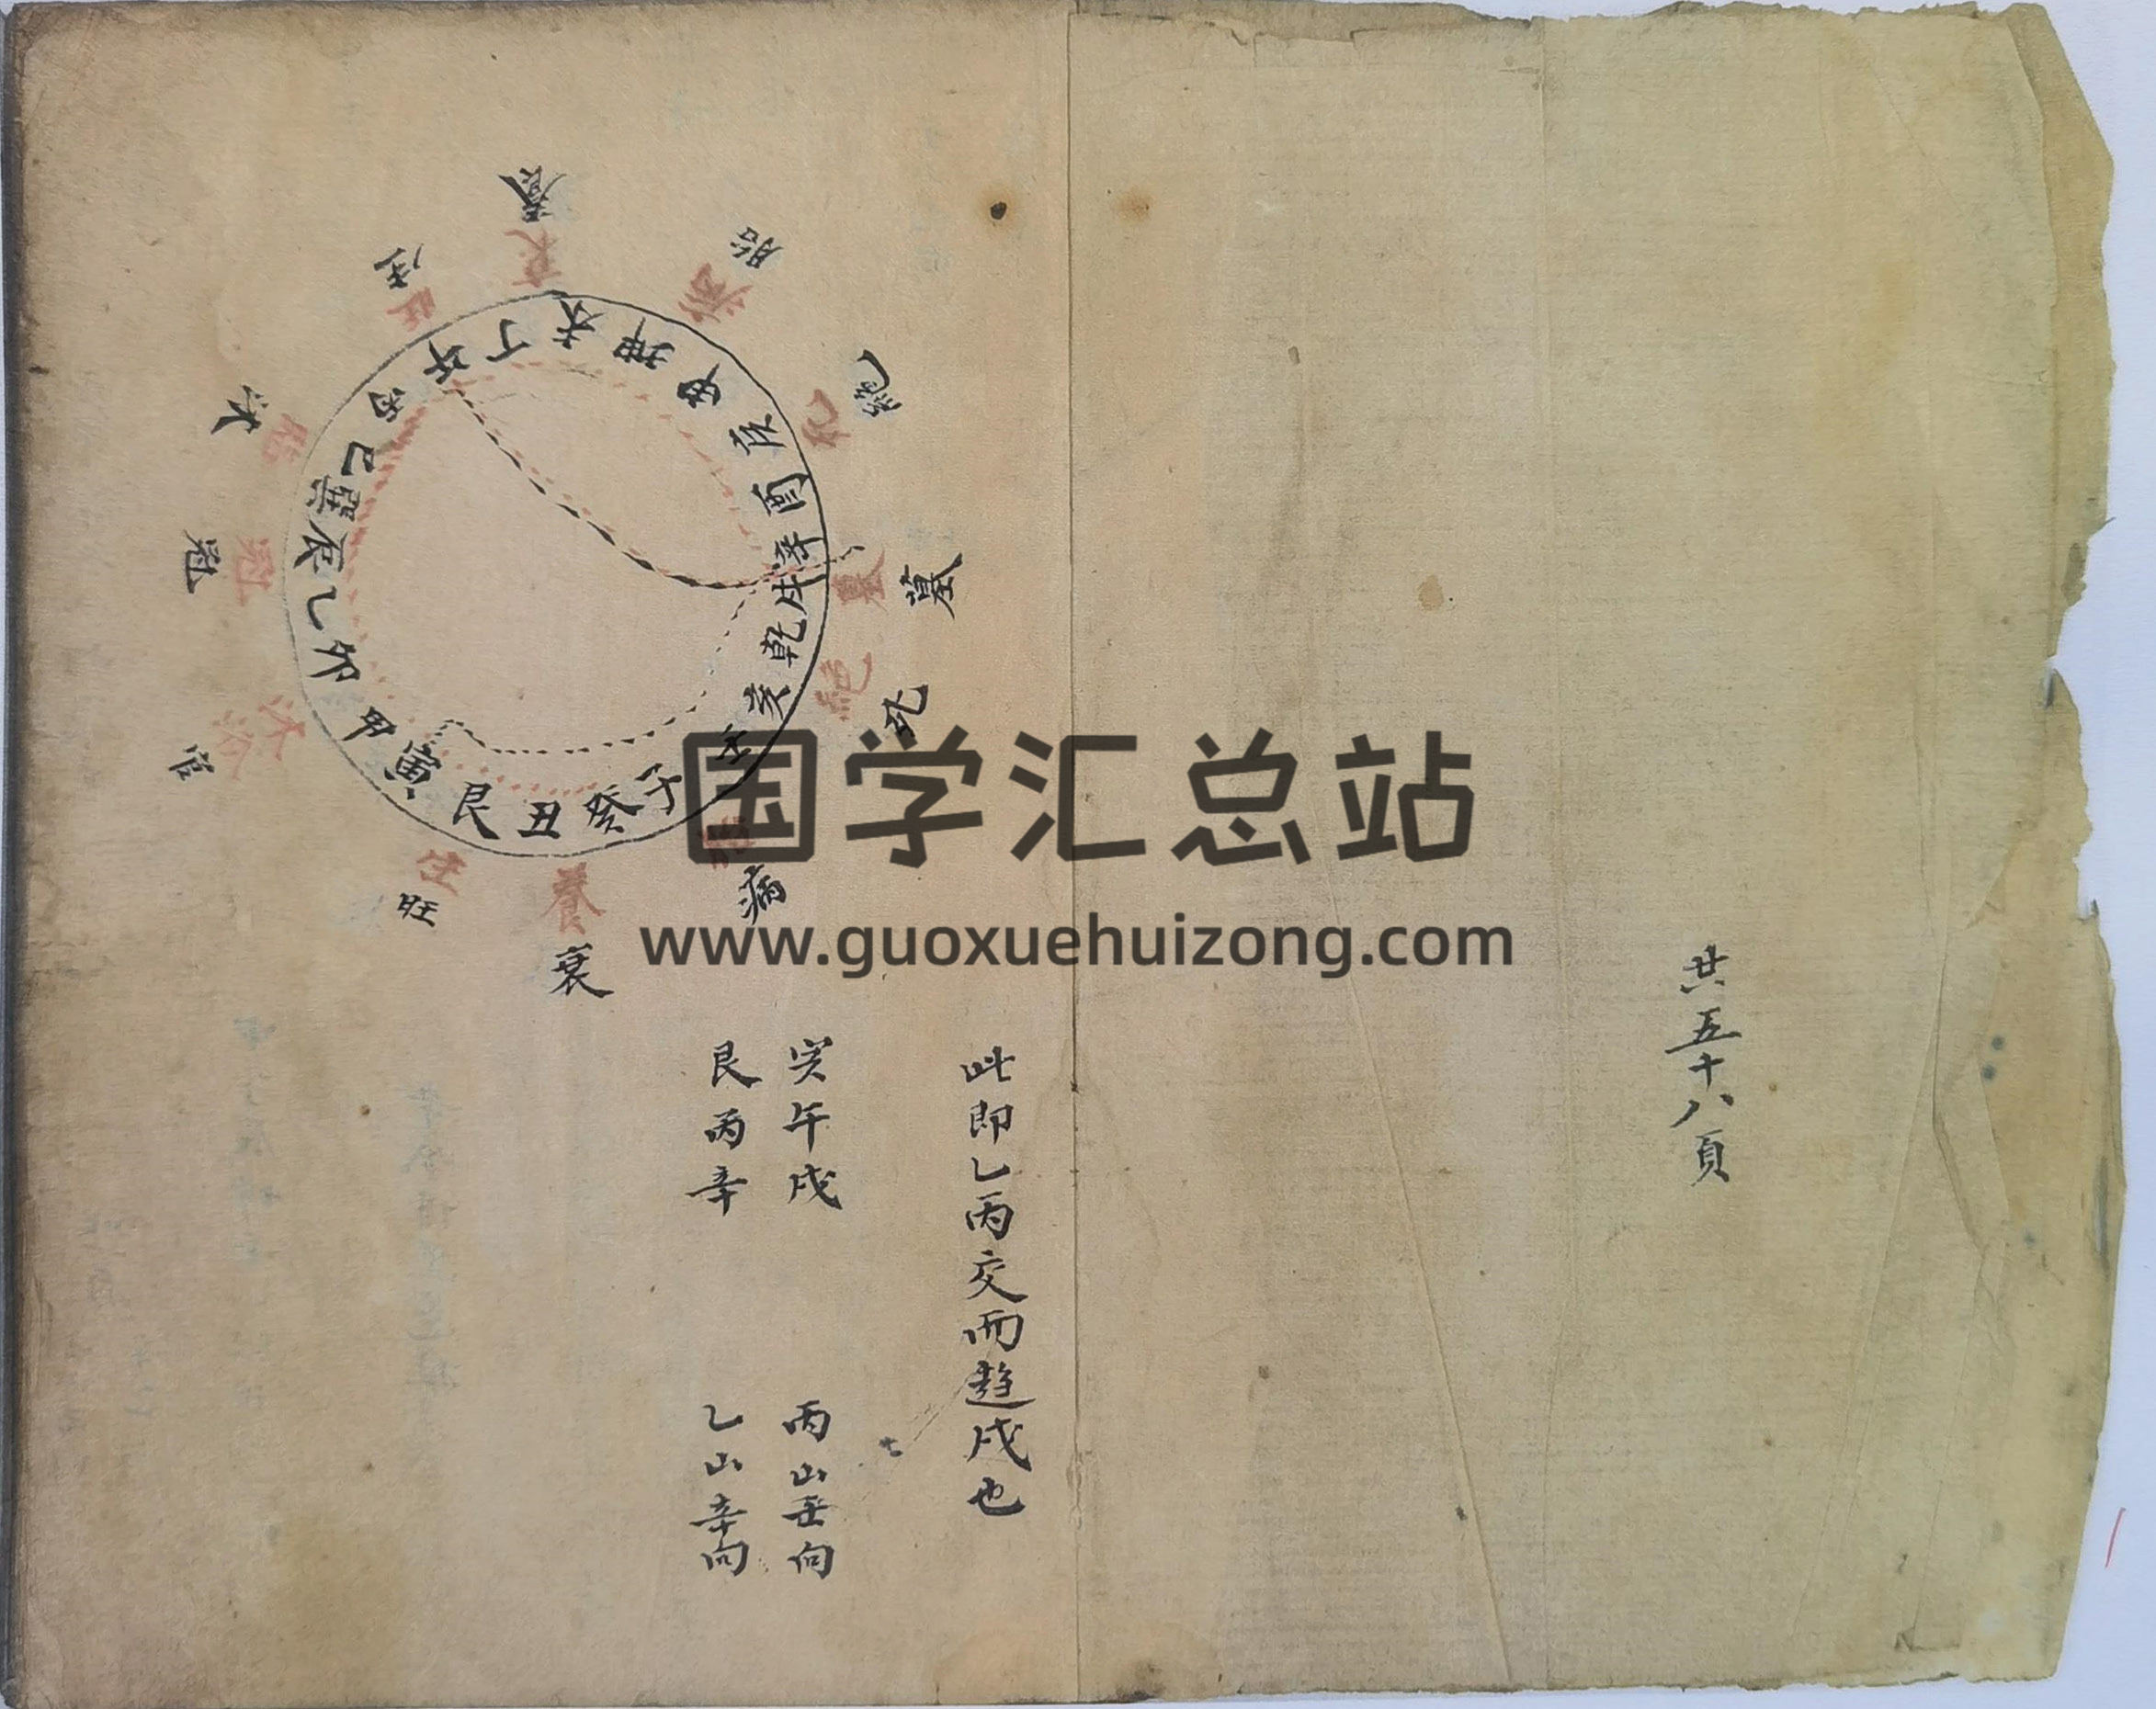 共五十八頁
此即乙丙交而趋戌也
寅午戌
丙山壬向
艮丙辛
乙山辛向
養
胎
絕
墓
死
病
衰
旺
官
冠
沐
生
衰
病
死
墓
絕
胎
養
生
沐浴
冠
旺
午
丁
未
坤
申
庚
酉
辛
戌
乾
亥
壬
子
癸
丑
艮
寅
甲
卯
乙
辰
巽
巳
丙
国学汇总站
www.guoxuehuizong.com